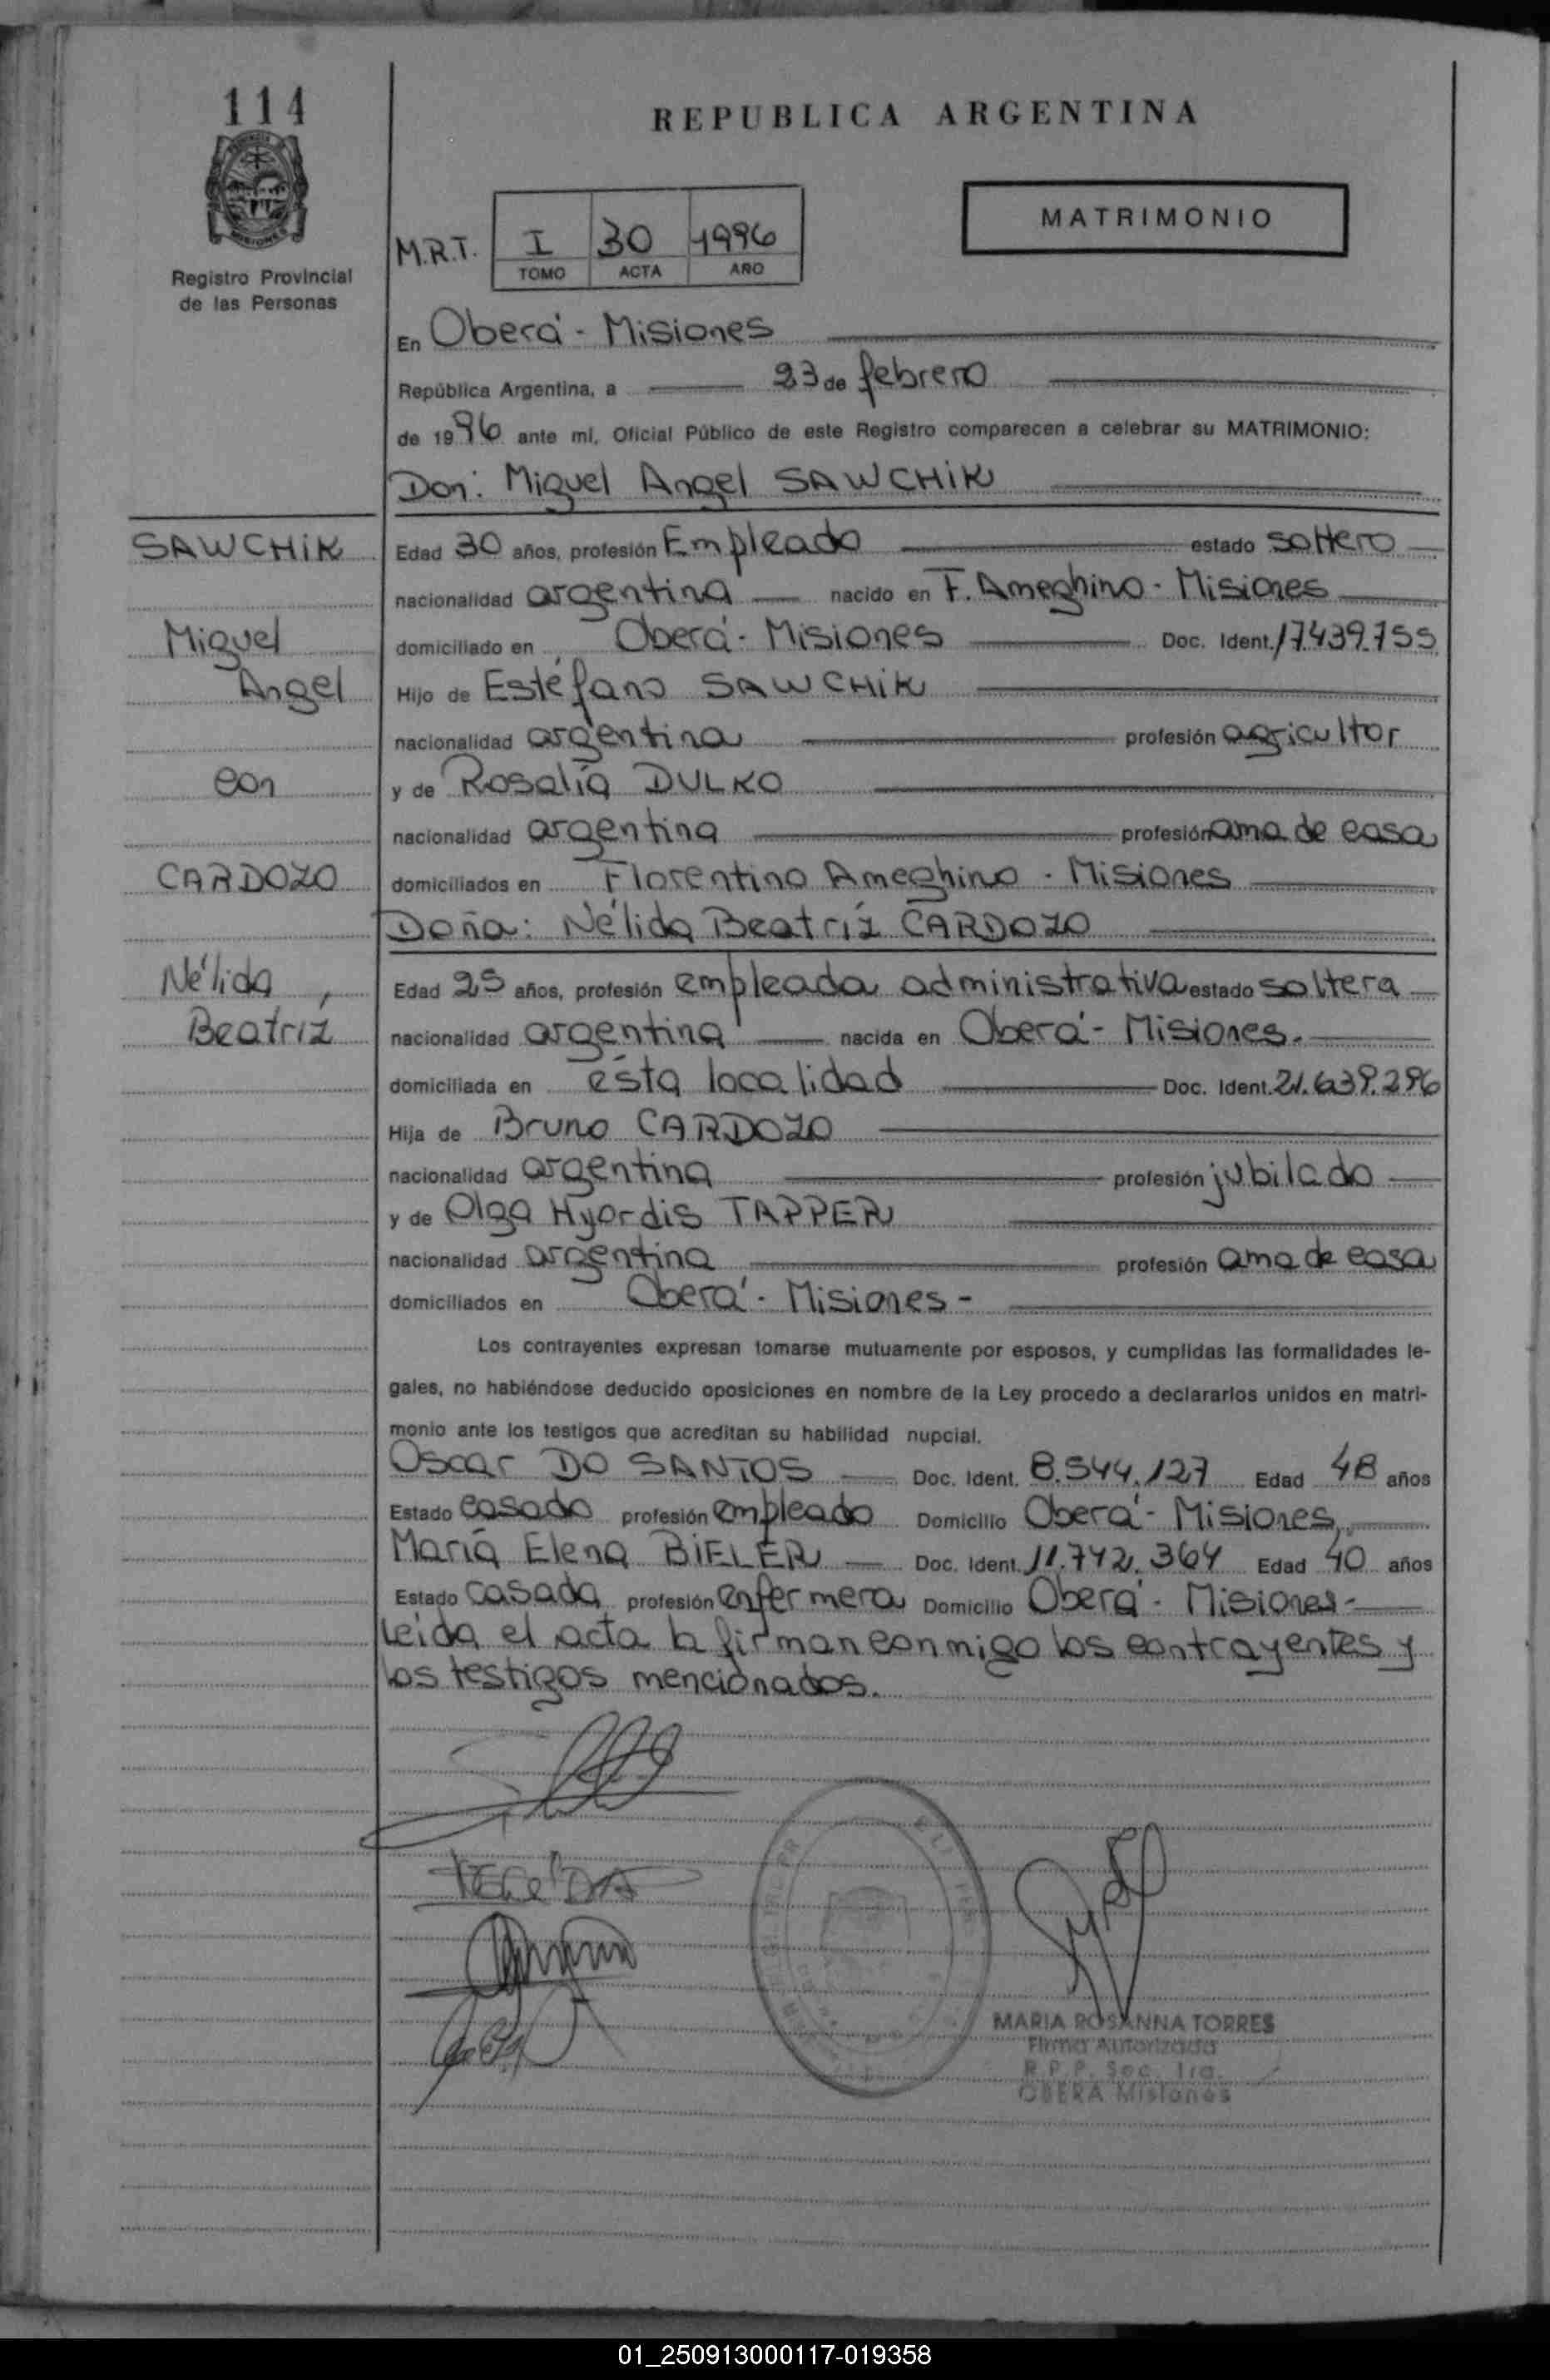 114
REPUBLICA ARGENTINA
MISIONES
Registro Provincial
de las Personas
M.R.T. I 30 1996
TOMO ACTA AÑO
MATRIMONIO
En Oberá - Misiones
República Argentina, a 23 de febrero
de 1996 ante mi, Oficial Público de este Registro comparecen a celebrar su MATRIMONIO:
Don: Miguel Angel SAWCHiK
SAWCHiK
Miguel
Angel
con
CARDOZO
Nélida
Beatríz
Edad 30 años, profesión Empleado estado soltero
nacionalidad argentina nacido en F. Ameghino - Misiones
domiciliado en Oberá - Misiones Doc. Ident. 17.439.755
Hijo de Estéfano SAWCHiK
nacionalidad argentina profesión agricultor
y de Rosalía DULKO
nacionalidad argentina profesión ama de casa
domiciliados en Florentino Ameghino - Misiones
Doña: Nélida Beatríz CARDOZO
Edad 25 años, profesión empleada administrativa estado soltera
nacionalidad argentina nacida en Oberá - Misiones.
domiciliada en ésta localidad Doc. Ident. 21.639.296
Hija de Bruno CARDOZO
nacionalidad argentina profesión jubilado
y de Olga Hyordis TAPPER
nacionalidad argentina profesión ama de casa
domiciliados en Oberá - Misiones -
Los contrayentes expresan tomarse mutuamente por esposos, y cumplidas las formalidades le-
gales, no habiéndose deducido oposiciones en nombre de la Ley procedo a declararlos unidos en matri-
monio ante los testigos que acreditan su habilidad nupcial.
Oscar DO SANTOS Doc. Ident. 8.544.127 Edad 48 años
Estado casado profesión empleado Domicilio Oberá - Misiones
María Elena BiELER Doc. Ident. 11.742.364 Edad 40 años
Estado casada profesión enfermera Domicilio Oberá - Misiones -
Leída el acta la firman conmigo los contrayentes y
los testigos mencionados.
MARIA ROSANNA TORRES
Firma Autorizada
R.P.P. Sec. 1ra.
OBERA Misiones
01_250913000117-019358